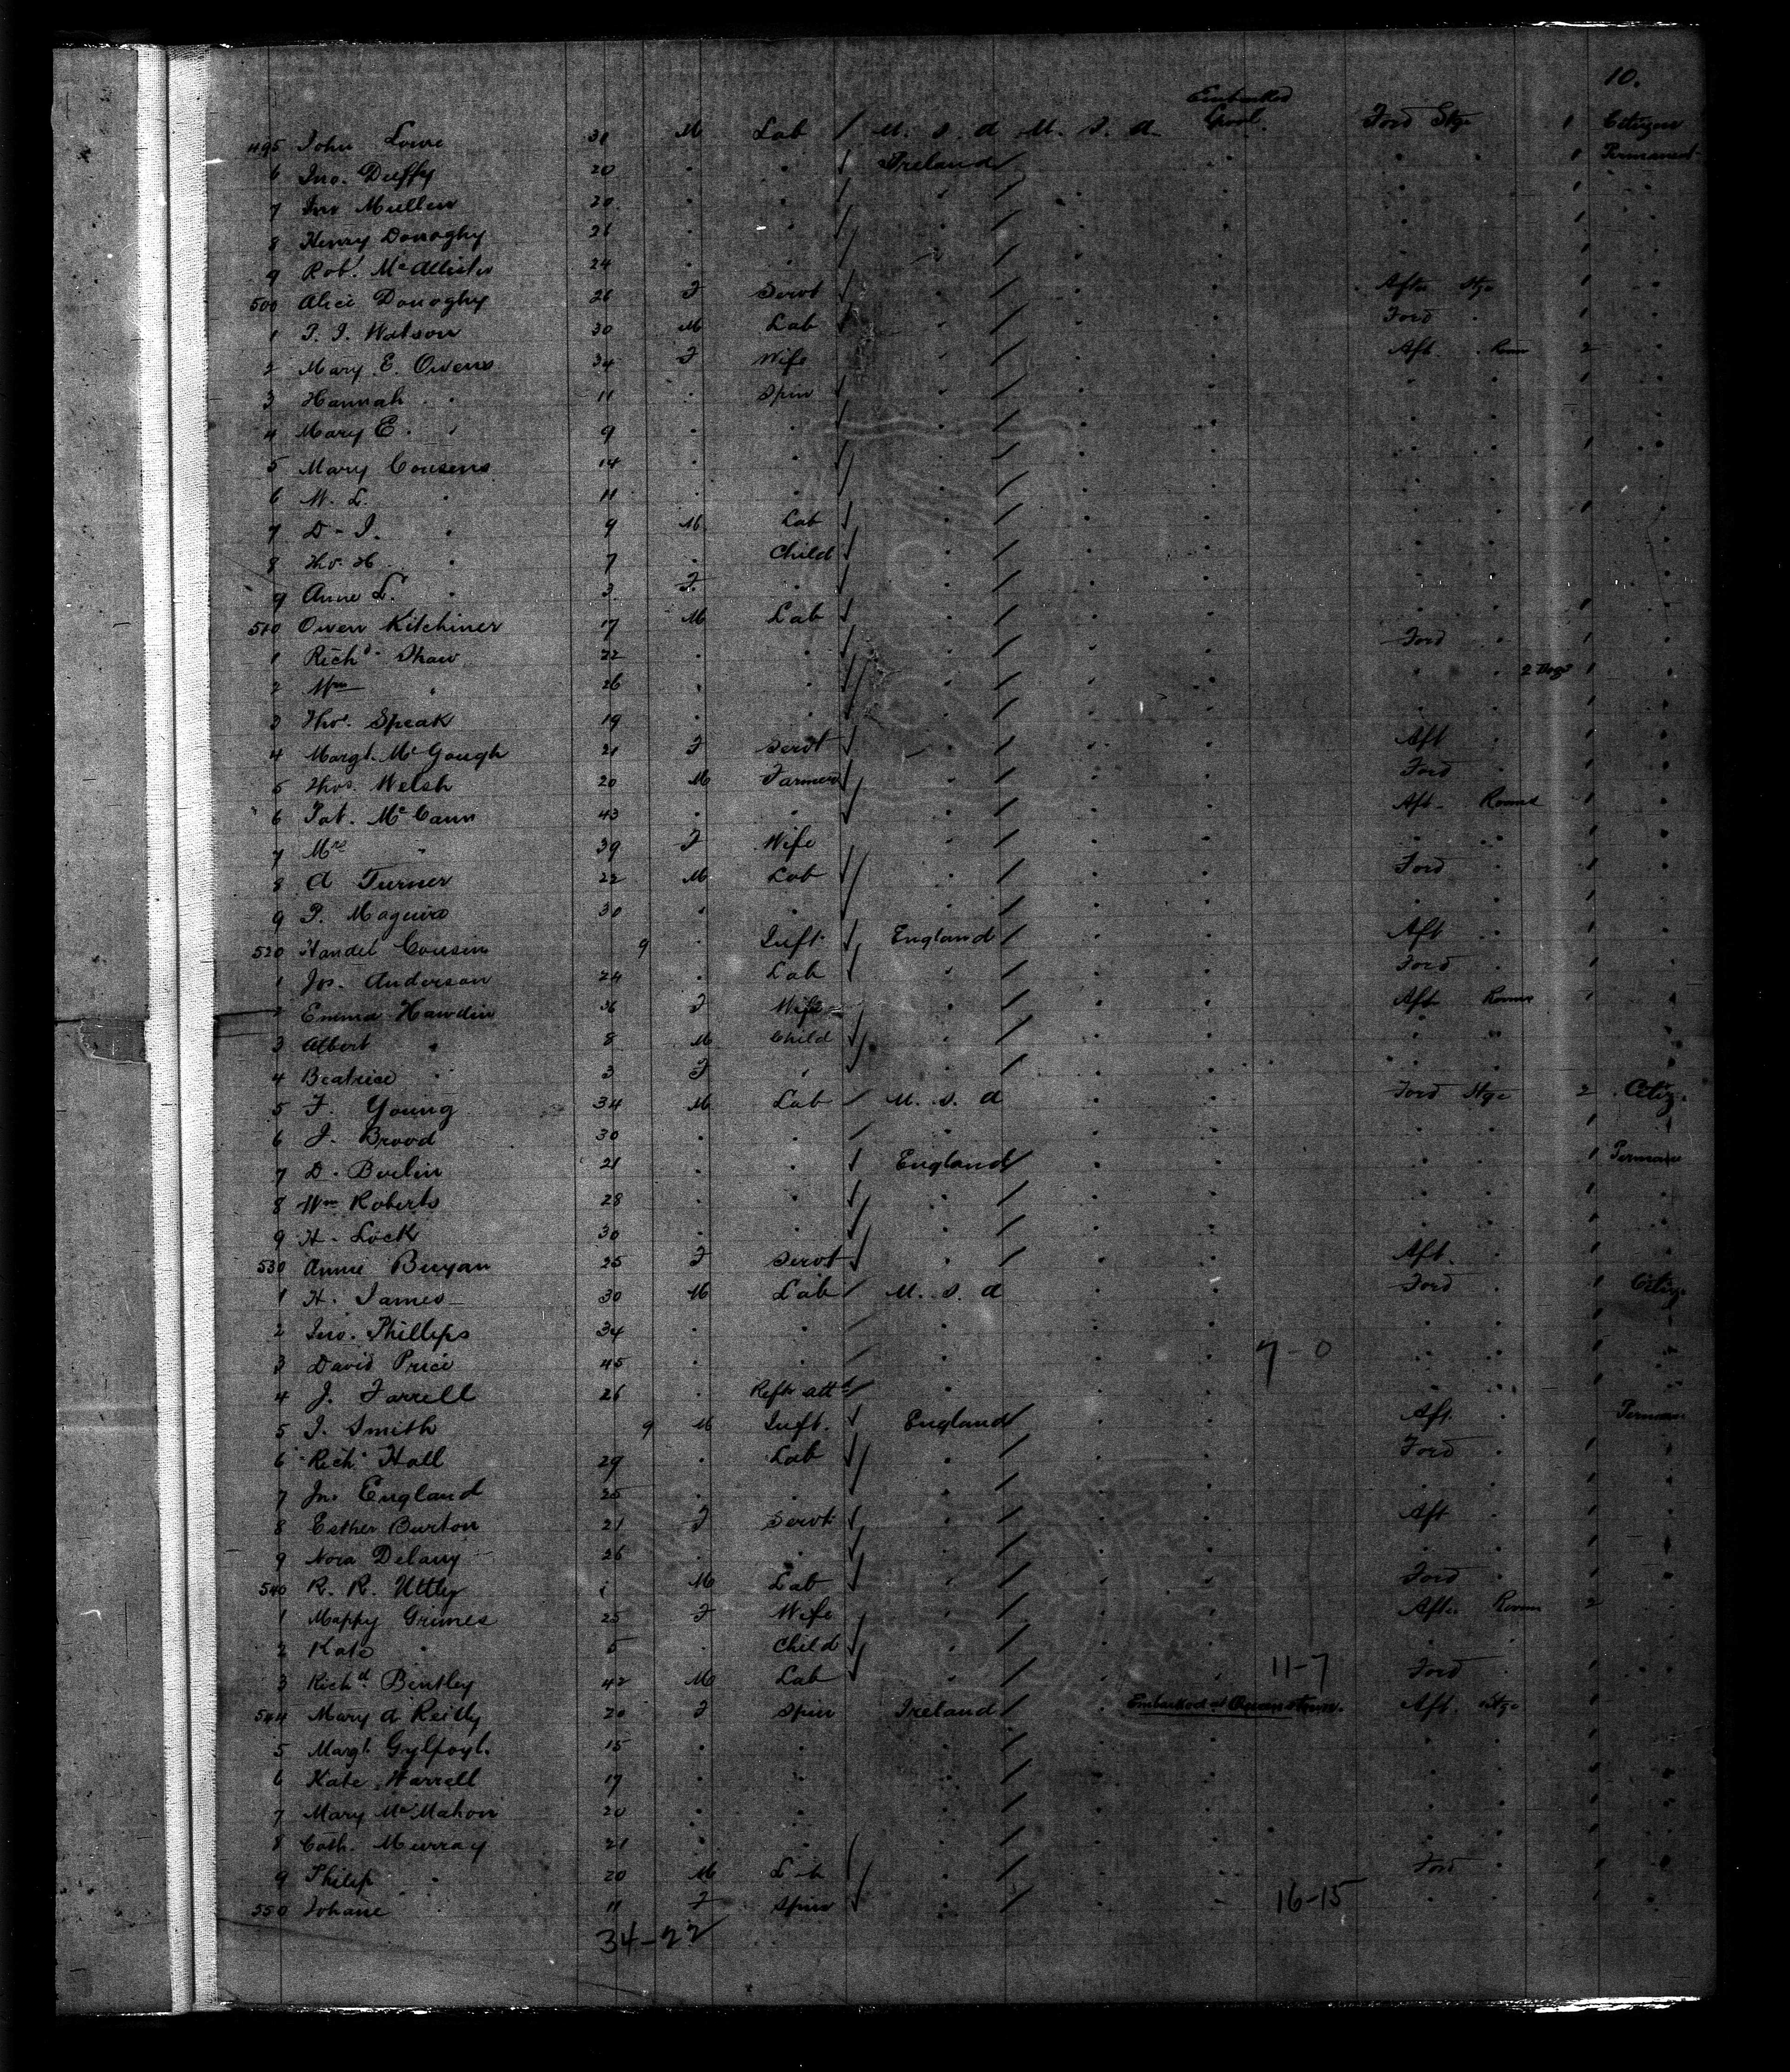 10.
Embarked
495 John Lowe 31 M Lab / U. S. A U. S. A. Lpool. Ford Stge 1 Citizen
6 Jno. Duffy 20 " " Ireland " " 1 Permanent
7 Jno Mullen 20 " " " 1 "
8 Henry Donoghy 21 " " " 1 "
9 Rob. McAllister 24 " " " 1 "
500 Alice Donoghy 26 F Servt " After Stge 1 "
1 P. J. Watson 30 M Lab " Ford " 1 "
2 Mary E. Owens 34 F Wife " Aft. Room 2 "
3 Hannah " 11 " Spin " 1 "
4 Mary E. " 9 " " "
5 Mary Cousens 14 " " " 1 "
6 M. L. " 11 " " "
7 D. J. " 9 M Lab " 1 "
8 Tho. H. " 7 " Child "
9 Anne L. " 3 F. " "
510 Owen Kitchiner 17 M Lab " 1 "
1 Richd. Shaw 22 " " " Ford " 1 "
2 Wm " 26 " " " " 2 Bags 1 "
3 Thos. Speak 19 " " " "
4 Margt. McGough 21 F Servt " Aft 1 "
5 Thos. Welsh 20 M Farmer " Ford 1 "
6 Pat. McCann 43 " " " Aft. Rooms 1 "
7 Mrs " 39 F Wife " " 1 "
8 A Turner 22 M Lab " Ford 1 "
9 P. Maguire 30 " " " " 1 "
520 Handel Cousin 9 " Inft. England Aft " 1 "
1 Jos. Anderson 24 " Lab " Ford " 1 "
2 Emma Hawdin 36 F Wife " Aft Rooms 1 "
3 Albert " 8 M Child " " "
4 Beatrice " 3 F " " " "
5 F. Young 34 M Lab / U. S. A Ford Stge 2 Citiz.
6 J. Brood 30 " " / " " 1 "
7 D. Bevlin 21 " " England " 1 Permane
8 Wm Roberts 28 " " " " 1 "
9 H. Lock 30 " " " " 1 "
530 Annie Buyan 25 F Servt " Aft. " 1 "
1 H. James 30 M Lab / U. S. A Ford " 1 Citiz.
2 Jno. Phillips 34 " " / " " 1 "
3 David Price 45 " " / " 7-0 " 1 "
4 J. Farrell 26 " Refr. attd / " " 1 "
5 J. Smith 9 M Inft. England Aft. " Perman.
6 Rich. Hall 29 " Lab " Ford " 1 "
7 Jno England 25 " " " " 1 "
8 Esther Burton 21 F Servt. " Aft " 1 "
9 Nora Delany 26 " " " " 1 "
540 R. R. Uttly M Lab " Ford " 1 "
1 Mappy Grimes 25 F Wife " After Room 2 "
2 Kate " 5 " Child " " "
3 Richd. Bentley 42 M Lab " 11-7 Ford " 1 "
544 Mary A Reilly 20 F Spin Ireland Embarked at Queenstown. Aft. Stge 1 "
5 Margt. Gylfoyl. 15 " " " " 1 "
6 Kate Harrell 17 " " " " 1 "
7 Mary McMahon 20 " " " " 1 "
8 Cath. Murray 21 " " " " 1 "
9 Philip " 20 M Lab " Ford " 1 "
550 Johane " 11 F Spin " 16-15 " 1 "
34-22